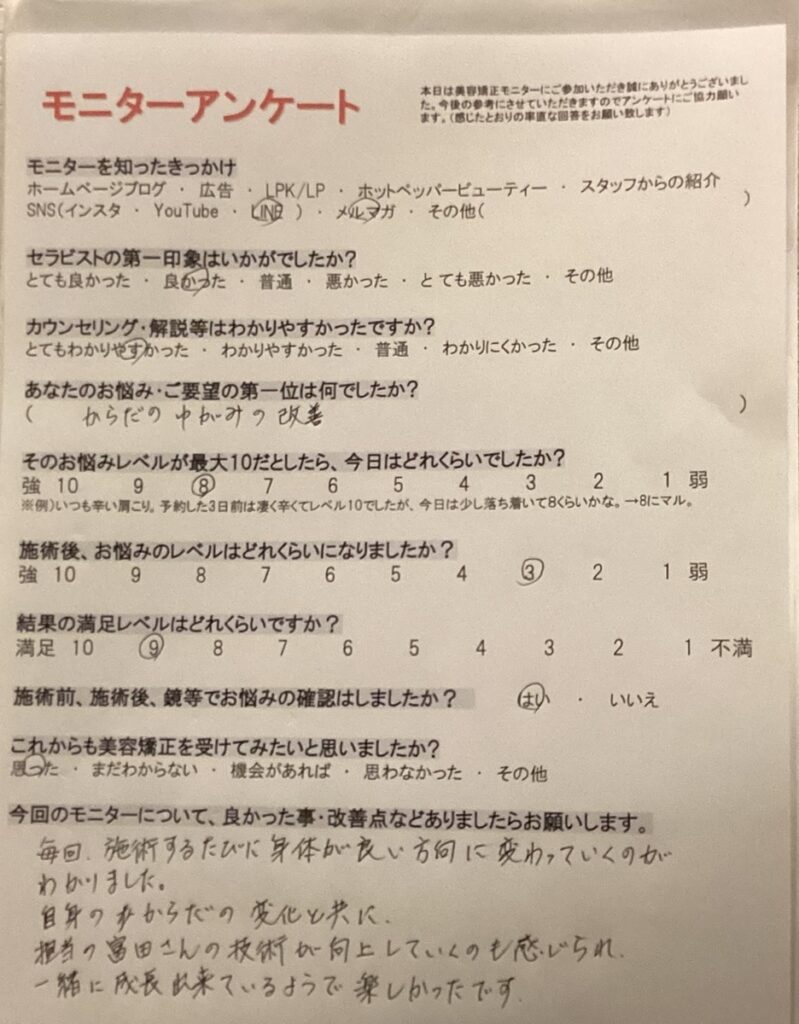 モニターアンケート
本日は美容矯正モニターにご参加いただき誠にありがとうございまし
た。今後の参考にさせていただきますのでアンケートにご協力願い
ます。(感じたとおりの率直な回答をお願い致します)
モニターを知ったきっかけ
ホームページブログ ・ 広告 ・ LPK/LP ・ ホットペッパービューティー ・ スタッフからの紹介
SNS(インスタ ・ YouTube ・ LINE ) ・ メルマガ ・ その他( )
セラピストの第一印象はいかがでしたか?
とても良かった ・ 良かった ・ 普通 ・ 悪かった ・ とても悪かった ・ その他
カウンセリング・解説等はわかりやすかったですか?
とてもわかりやすかった ・ わかりやすかった ・ 普通 ・ わかりにくかった ・ その他
あなたのお悩み・ご要望の第一位は何でしたか?
( からだのゆがみの改善 )
そのお悩みレベルが最大10だとしたら、今日はどれくらいでしたか?
強 10 9 8 7 6 5 4 3 2 1 弱
※例)いつも辛い肩こり。予約した3日前は凄く辛くてレベル10でしたが、今日は少し落ち着いて8くらいかな。→8にマル。
施術後、お悩みのレベルはどれくらいになりましたか?
強 10 9 8 7 6 5 4 3 2 1 弱
結果の満足レベルはどれくらいですか?
満足 10 9 8 7 6 5 4 3 2 1 不満
施術前、施術後、鏡等でお悩みの確認はしましたか? はい ・ いいえ
これからも美容矯正を受けてみたいと思いましたか?
思った ・ まだわからない ・ 機会があれば ・ 思わなかった ・ その他
今回のモニターについて、良かった事・改善点などありましたらお願いします。
毎回、施術するたびに身体が良い方向に変わっていくのが
わかりました。
自身のからだの変化と共に、
担当の富田さんの技術が向上していくのも感じられ、
一緒に成長出来ているようで楽しかったです。